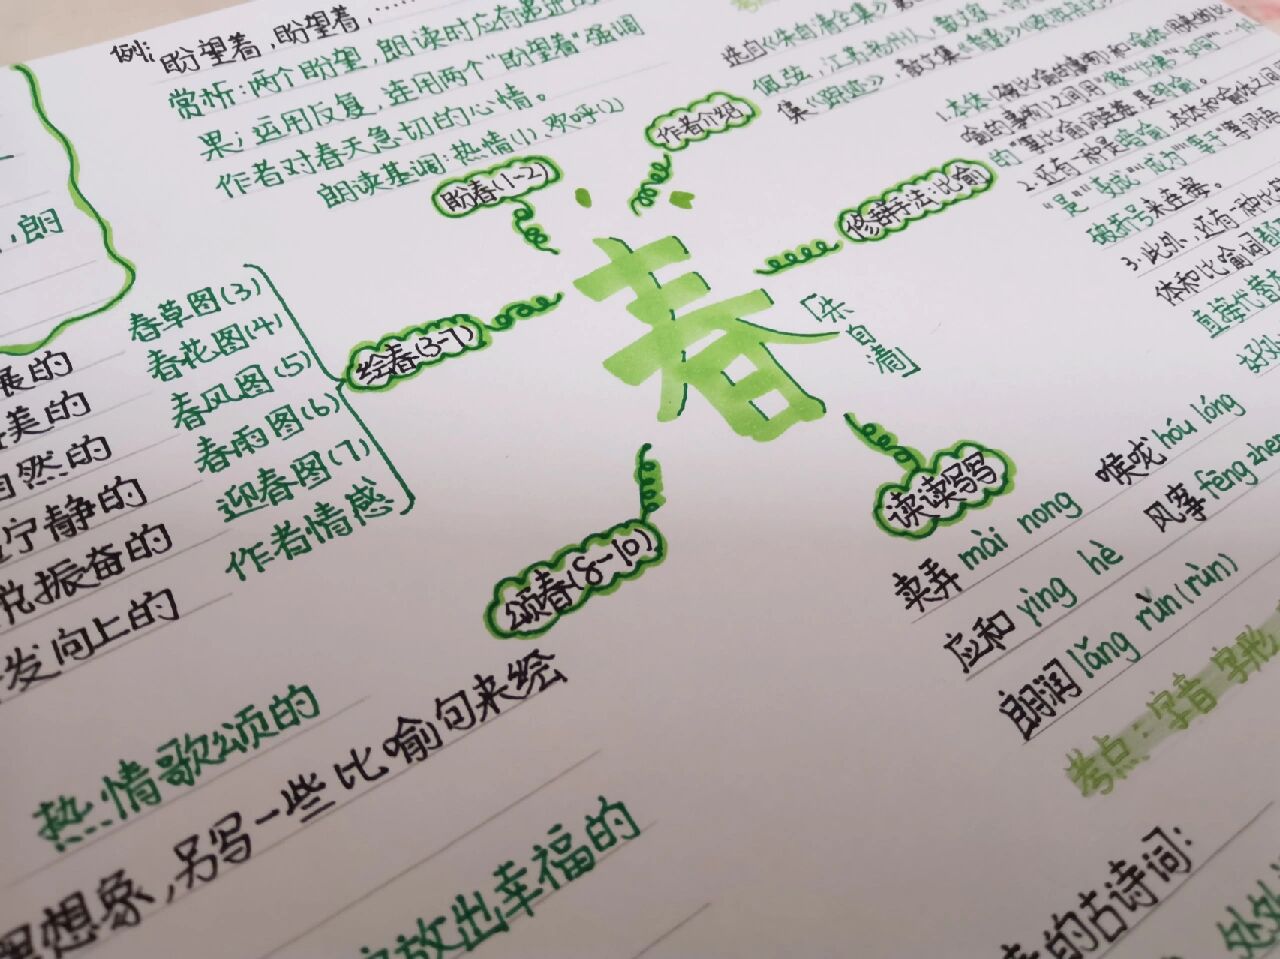 例:盼望着,盼望着,……
赏析:两个盼望,朗读时应有递进效
果;运用反复,连用两个"盼望着"强调
作者对春天急切的心情。
朗读基调:热情(1) 欢呼(2)
盼春(1-2)
作者介绍
选自《朱自清全集》
佩弦,江苏扬州人,散文家、
集《踪迹》,散文集《背影》
修辞手法:比喻
1.本体(被比喻的事物)和喻体
喻的事物)之间用"像""仿佛""如同"…
的"等比喻词连接是明喻。
2.还有一种是暗喻,本体和喻体之间用
"是""变成""成为""等于"等词语
破折号来连接。
3.此外,还有一种
体和比喻词都
直接代替
好处
春
「朱自清」
,朗
绘春(3-7)
春草图(3)
春花图(4)
春风图(5)
春雨图(6)
迎春图(7)
作者情感
展的
美的
自然的
宁静的
悦振奋的
发向上的
颂春(8-10)
热情歌颂的
读读写写
喉咙 hóu lóng
卖弄 mài nong
风筝 fēng zhen
应和 yìng hè
朗润 lǎng rùn(rùn)
考点:字音 字形
想象,另写一些比喻句来绘
放出幸福的
的古诗词:
处处